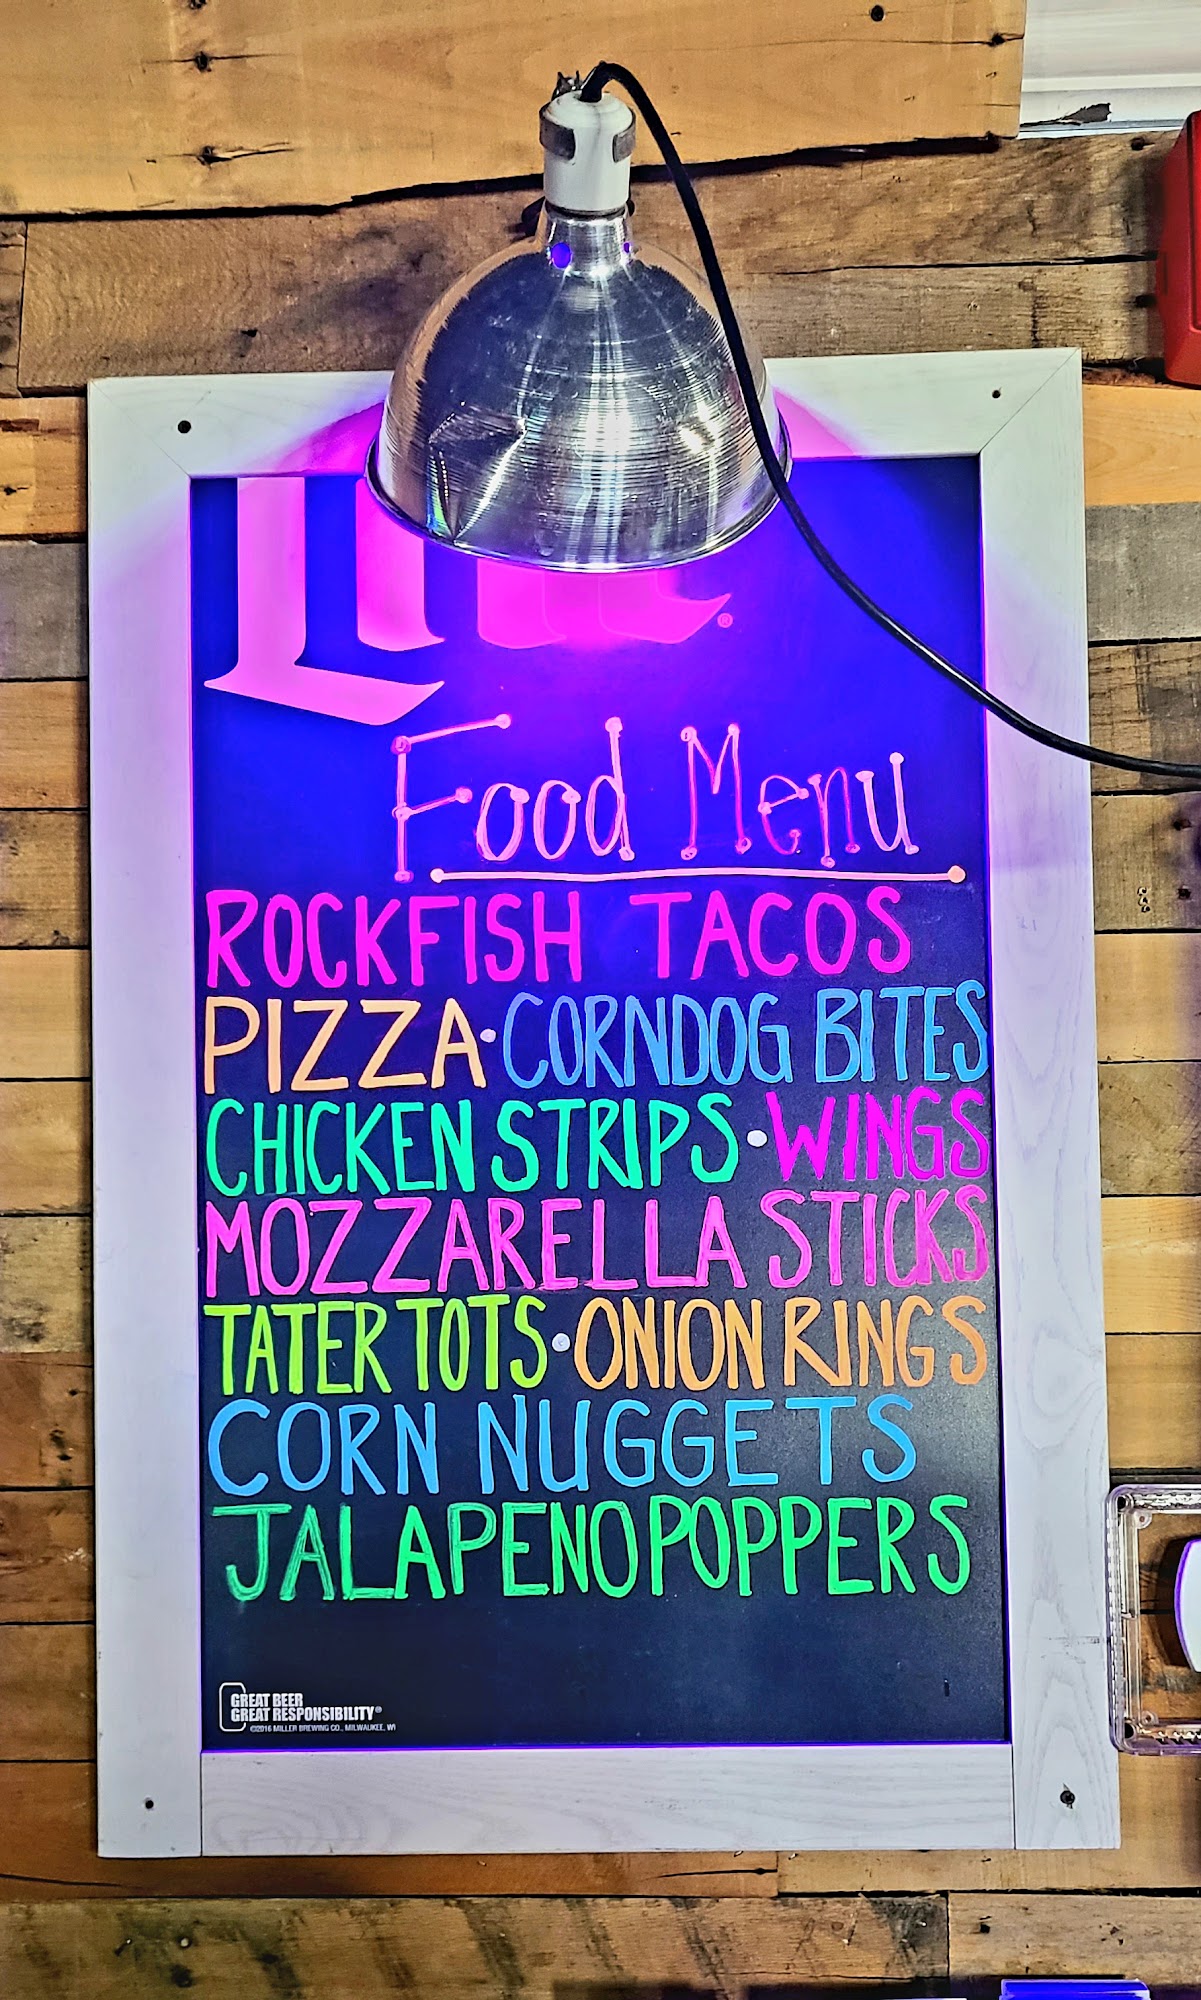 Lite®
Food Menu
ROCKFISH TACOS
PIZZA•CORNDOG BITES
CHICKEN STRIPS•WINGS
MOZZARELLA STICKS
TATER TOTS•ONION RINGS
CORN NUGGETS
JALAPENO POPPERS
GREAT BEER
GREAT RESPONSIBILITY®
©2016 MILLER BREWING CO., MILWAUKEE, WI